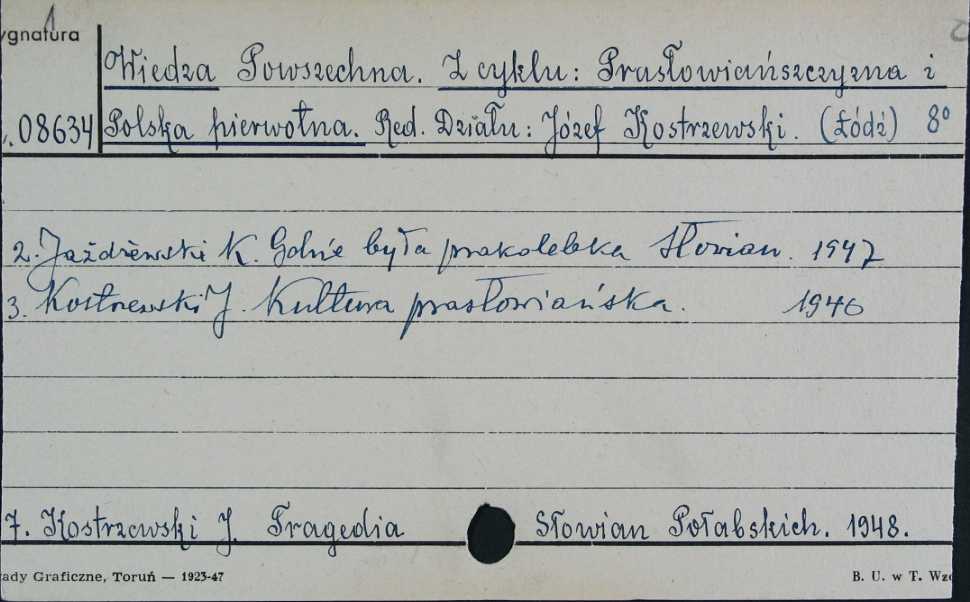 ygnatura
Wiedza Powszechna. Z cyklu: Prasłowiańszczyzna i
08634 Polska pierwotna. Red. Działu: Józef Kostrzewski. (Łódź) 8°
2. Jażdżewski K. Gdzie była prakolebka Słowian. 1947
3. Kostrzewski J. Kultura prasłowiańska. 1946
7. Kostrzewski J. Tragedia Słowian Połabskich. 1948.
ady Graficzne, Toruń — 1923-47 B. U. w T. Wzó